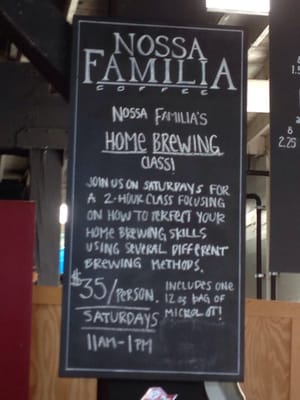 NOSSA
FAMILIA
COFFEE
NOSSA FAMILIA'S
HOME BREWING
CLASS!
JOIN US ON SATURDAYS FOR
A 2-HOUR CLASS FOCUSING
ON HOW TO PERFECT YOUR
HOME BREWING SKILLS
USING SEVERAL DIFFERENT
BREWING METHODS.
$35/PERSON.
SATURDAYS
11AM-1PM
INCLUDES ONE
12 OZ BAG OF
MICROLOT!
8
2.25